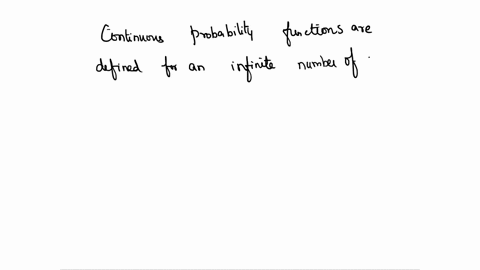 Continuous probability functions are
defined for an infinite number of .